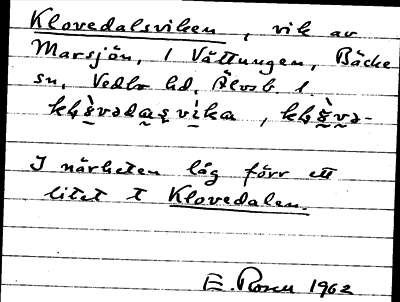 Klovedalsviken, vik av
Marsjön, i Vättungen, Bäcke
sn, Vedbo hd, Älvsb. l.
I närheten låg förr ett
litet t Klovedalen.
E. Rosen 1962